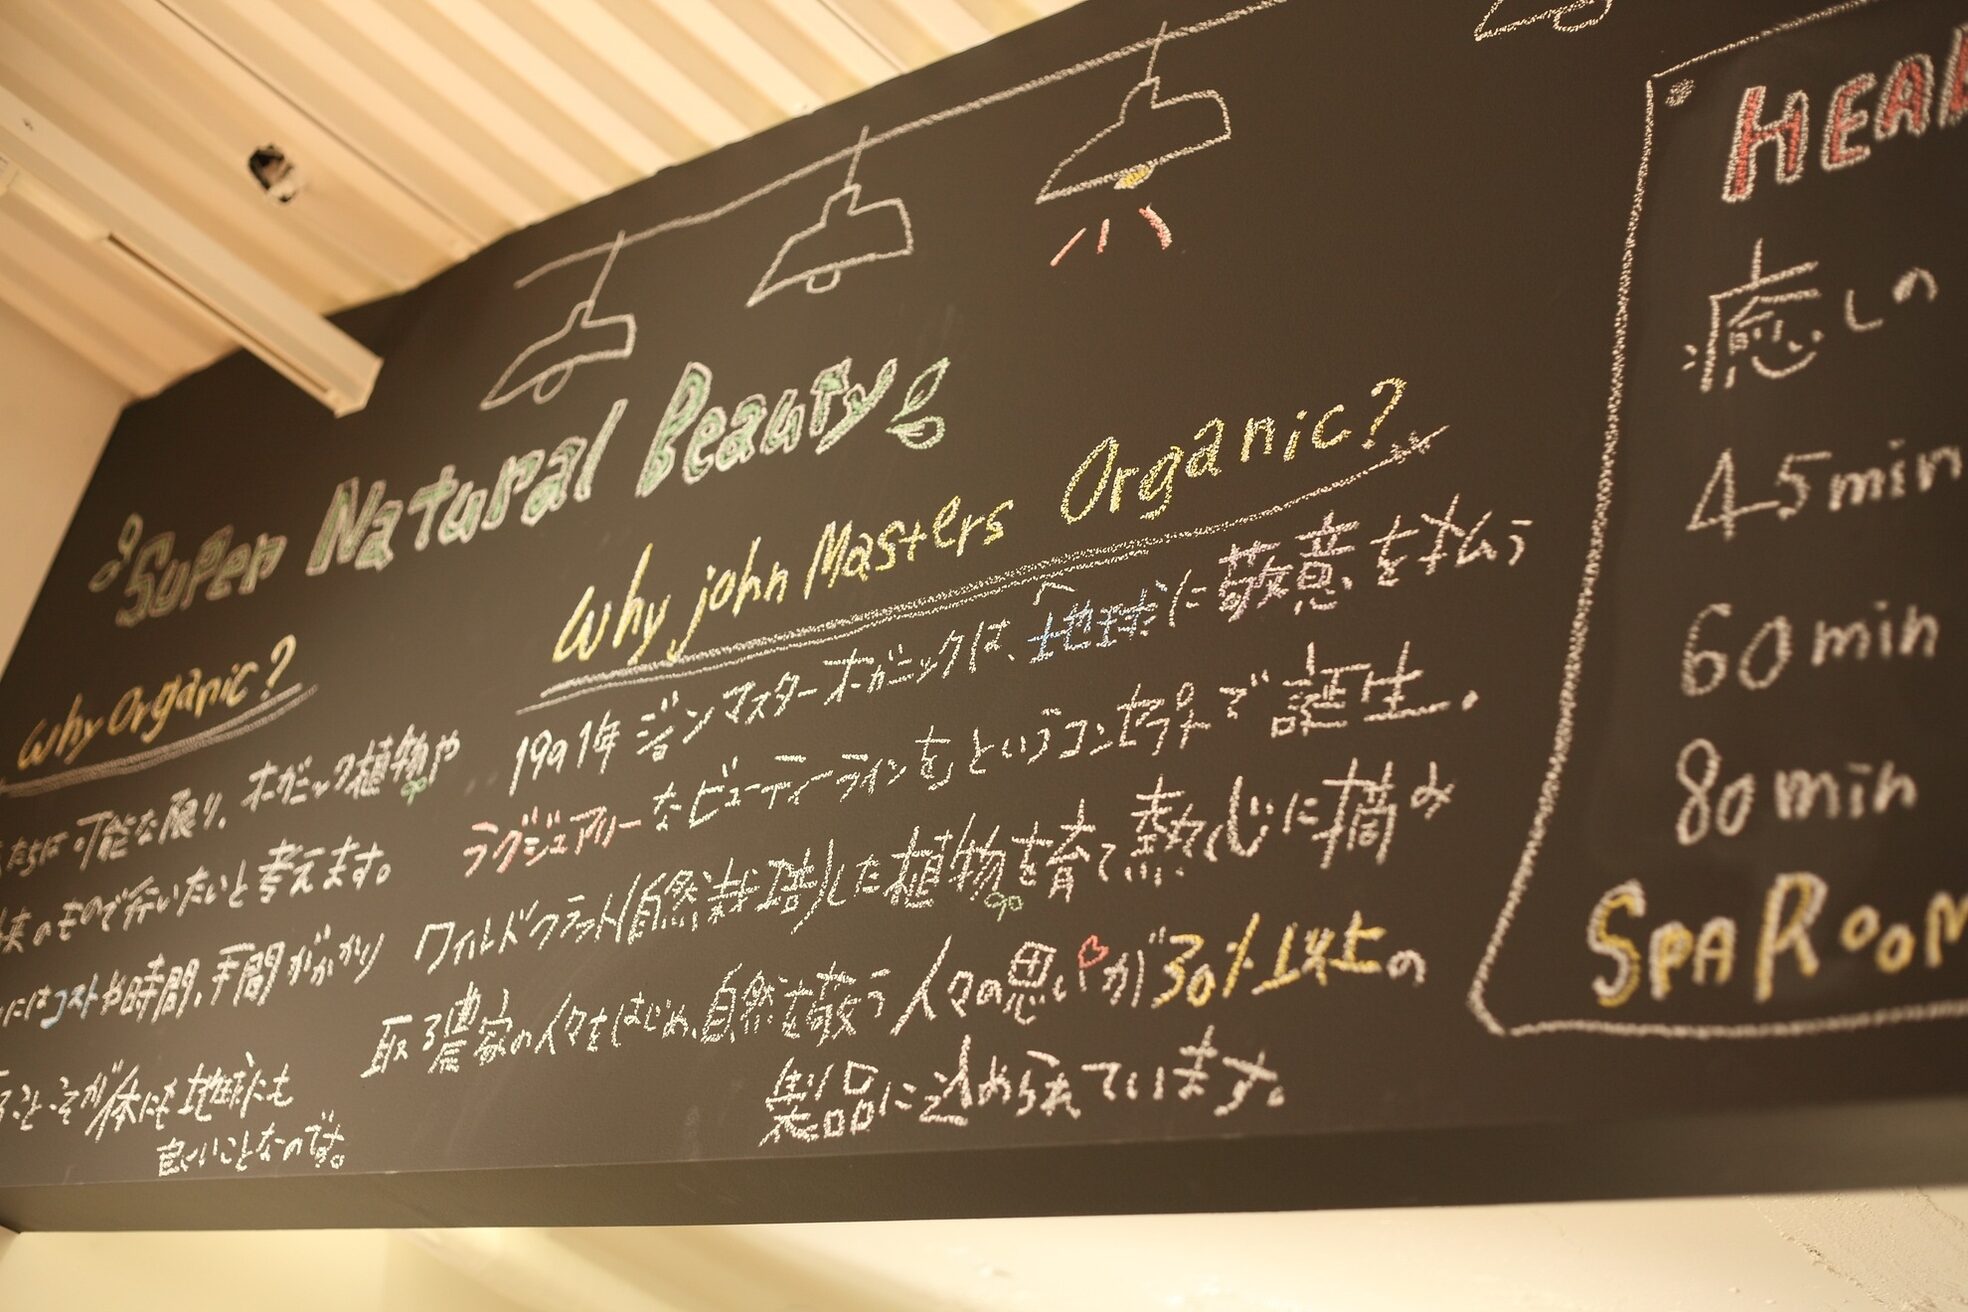 Super Natural Beauty
Why Organic?
たちは可能な限り、オーガニック植物や
来のもので行いたいと考えます。
にはコストや時間、手間がかかり
ことこそが体にも地球にも
良いことなのです。
Why john Masters Organic?
1991年 ジョンマスターオーガニックは、地球に敬意を払う
ラグジュアリーなビューティーラインをというコンセプトで誕生。
ワイルドクラフト(自然栽培)した植物を育て熱心に摘み
取る農家の人々をはじめ、自然を敬う人々の思いが30%以上の
製品に込められています。
HEA
癒しの
45min
60min
80min
SPA ROOM